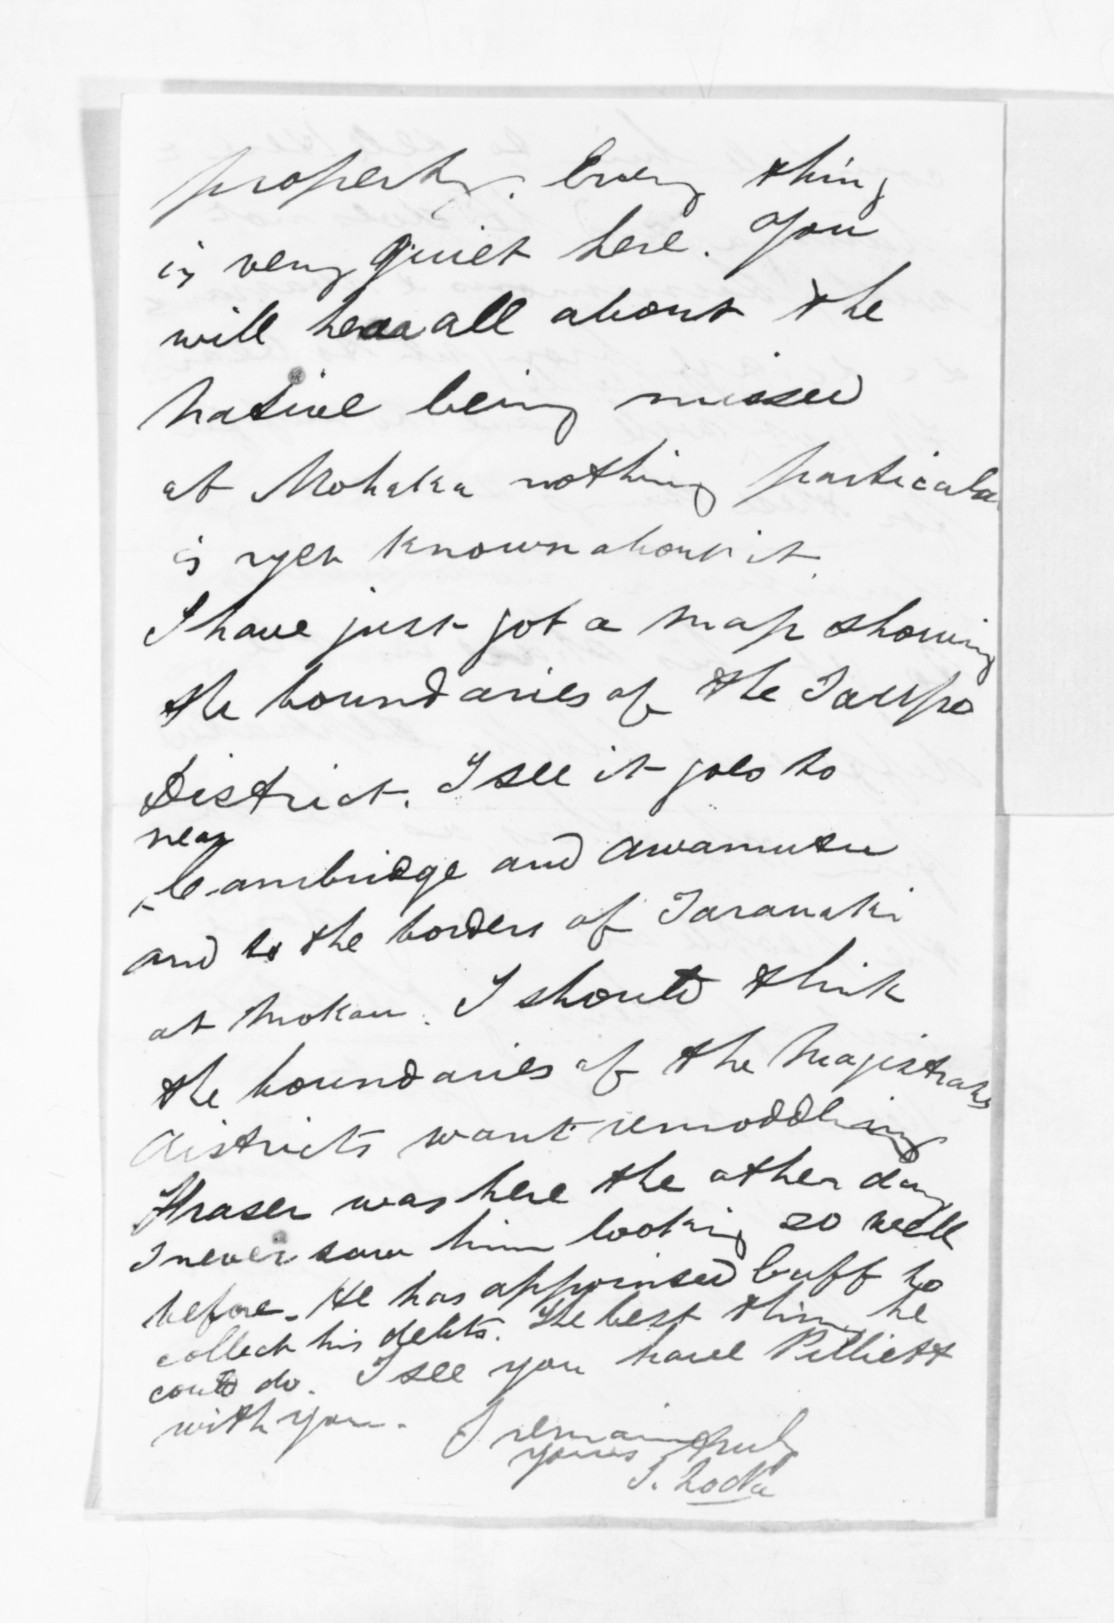 property. Every thing
is very quiet here. You
will hear all about the
Native being missed
at Mohaka nothing particular
is yet known about it.
I have just got a map showing
the boundaries of the Taupo
District. I see it goes to
near
Cambridge and Awamutu
and to the borders of Taranaki
at Mokau. I should think
the boundaries of the Magistrates
districts want remoddling
Fraser was here the other day
I never saw him looking so well
before. He has appointed Cuff to
collect his debts. The best thing he
could do. I see you have Pilliett
with you.
I remain truly
yours
S. Locke